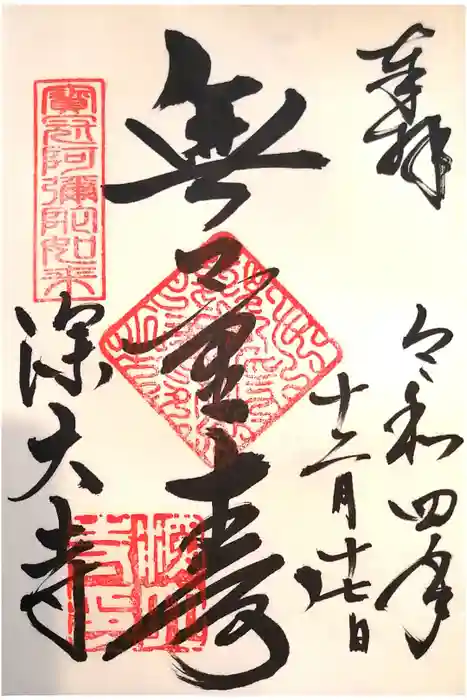 奉拝
令和四年
十二月十七日
無量寿
寳冠阿彌陀如来
深大寺